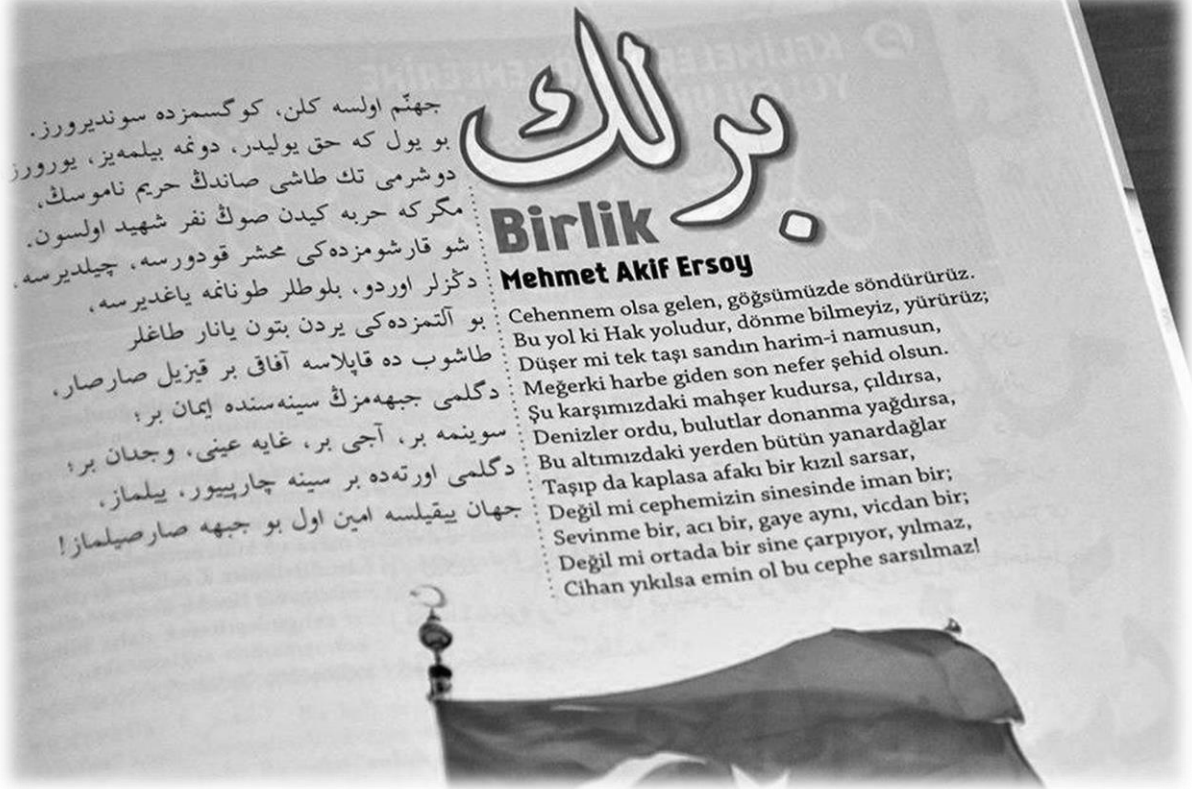 برلك
Birlik
Mehmet Akif Ersoy
جهنّم اولسه كلن، كوگسمزده سونديرورز.
بو يول كه حق يوليدر، دونمه بيلمه‌يز، يورورز
دوشرمى تك طاشى صاندڭ حريم ناموسڭ،
مگركه حربه كيدن صوڭ نفر شهيد اولسون.
شو قارشومزده‌كى محشر قودورسه، چيلديرسه،
دڭزلر اوردو، بلوطلر طونانمه ياغديرسه،
بو آلتمزده‌كى يردن بتون يانار طاغلر
طاشوب ده قاپلاسه آفاقى بر قيزيل صارصار،
دگلمى جبهه‌مزڭ سينه‌سنده ايمان بر؛
سوينمه بر، آجى بر، غايه عينى، وجدان بر؛
دگلمى اورته‌ده بر سينه چارپييور، ييلماز،
جهان ييقيلسه امين اول بو جبهه صارصيلماز!
Cehennem olsa gelen, göğsümüzde söndürürüz.
Bu yol ki Hak yoludur, dönme bilmeyiz, yürürüz;
Düşer mi tek taşı sandın harim-i namusun,
Meğerki harbe giden son nefer şehid olsun.
Şu karşımızdaki mahşer kudursa, çıldırsa,
Denizler ordu, bulutlar donanma yağdırsa,
Bu altımızdaki yerden bütün yanardağlar
Taşıp da kaplasa afakı bir kızıl sarsar,
Değil mi cephemizin sinesinde iman bir;
Sevinme bir, acı bir, gaye aynı, vicdan bir;
Değil mi ortada bir sine çarpıyor, yılmaz,
Cihan yıkılsa emin ol bu cephe sarsılmaz!